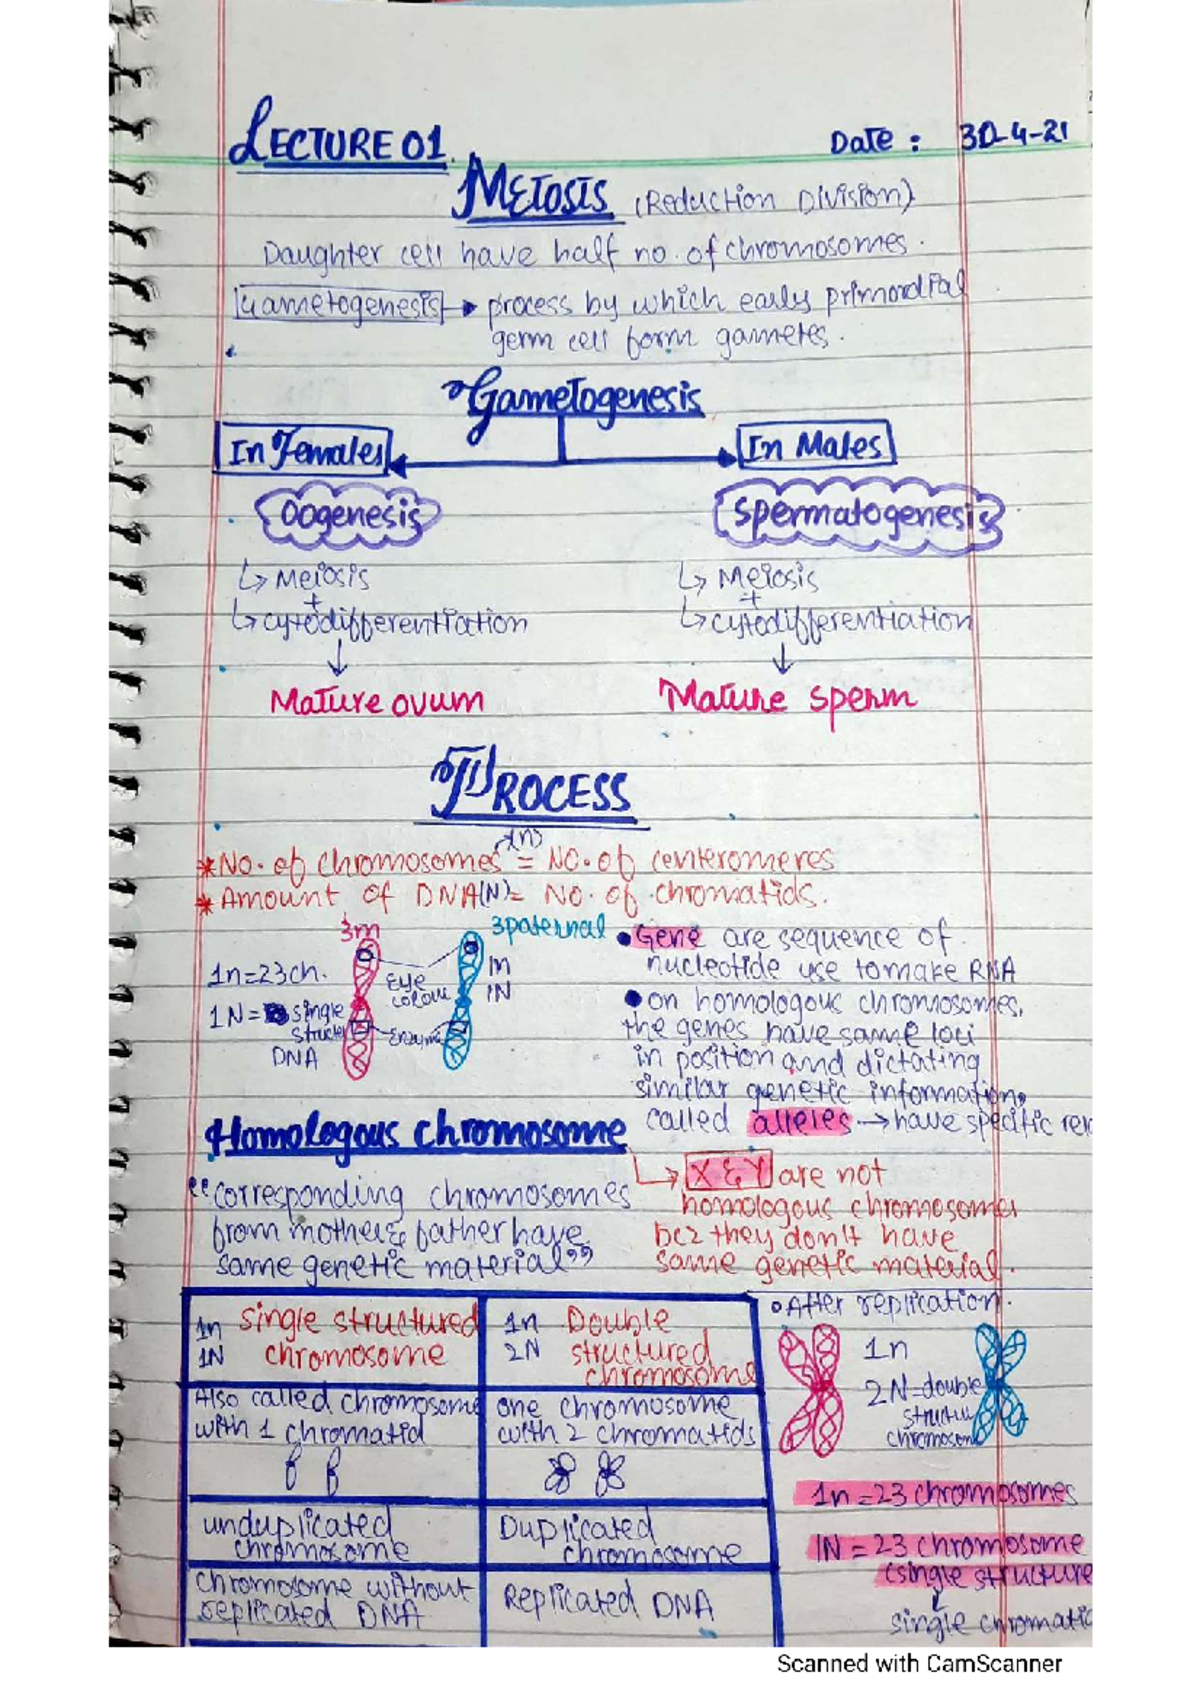 LECTURE 01.
Date : 30-4-21
MEIOSIS (Reduction Division)
Daughter cell have half no. of chromosomes.
Gametogenesis → process by which early primordial
germ cell form gametes.
Gametogenesis
In Females
In Males
Oogenesis
Spermatogenesis
↳ Meiosis
+
↳ cytodifferentiation
↓
Mature ovum
↳ Meiosis
+
↳ cytodifferentiation
↓
Mature sperm
PROCESS
(n)
* No. of chromosomes = NO. of centeromeres
* Amount of DNA(N)= No. of chromatids.
3m
3paternal
1n=23ch.
1N= single
DNA
Eye
colour
Enzyme
1n
1N
• Gene are sequence of
nucleotide use to make RNA
• on homologous chromosomes,
the genes have same loci
in position and dictating
similar genetic information,
called alleles → have specific
Homologous chromosome
↳ X & Y are not
homologous chromosomes
bcz they don't have
same genetic material.
"corresponding chromosomes
from mother & father have
same genetic material"
1n single structured
1N chromosome
1n Double
2N structured
chromosome
Also called chromosome
with 1 chromatid
one chromosome
with 2 chromatids
unduplicated
chromosome
Duplicated
chromosome
chromosome without
replicated DNA
Replicated DNA
• After replication.
1n
2N=double
chromosome
1n = 23 chromosomes
1N = 23 chromosome
(single structure
↓
single chromatid
Scanned with CamScanner